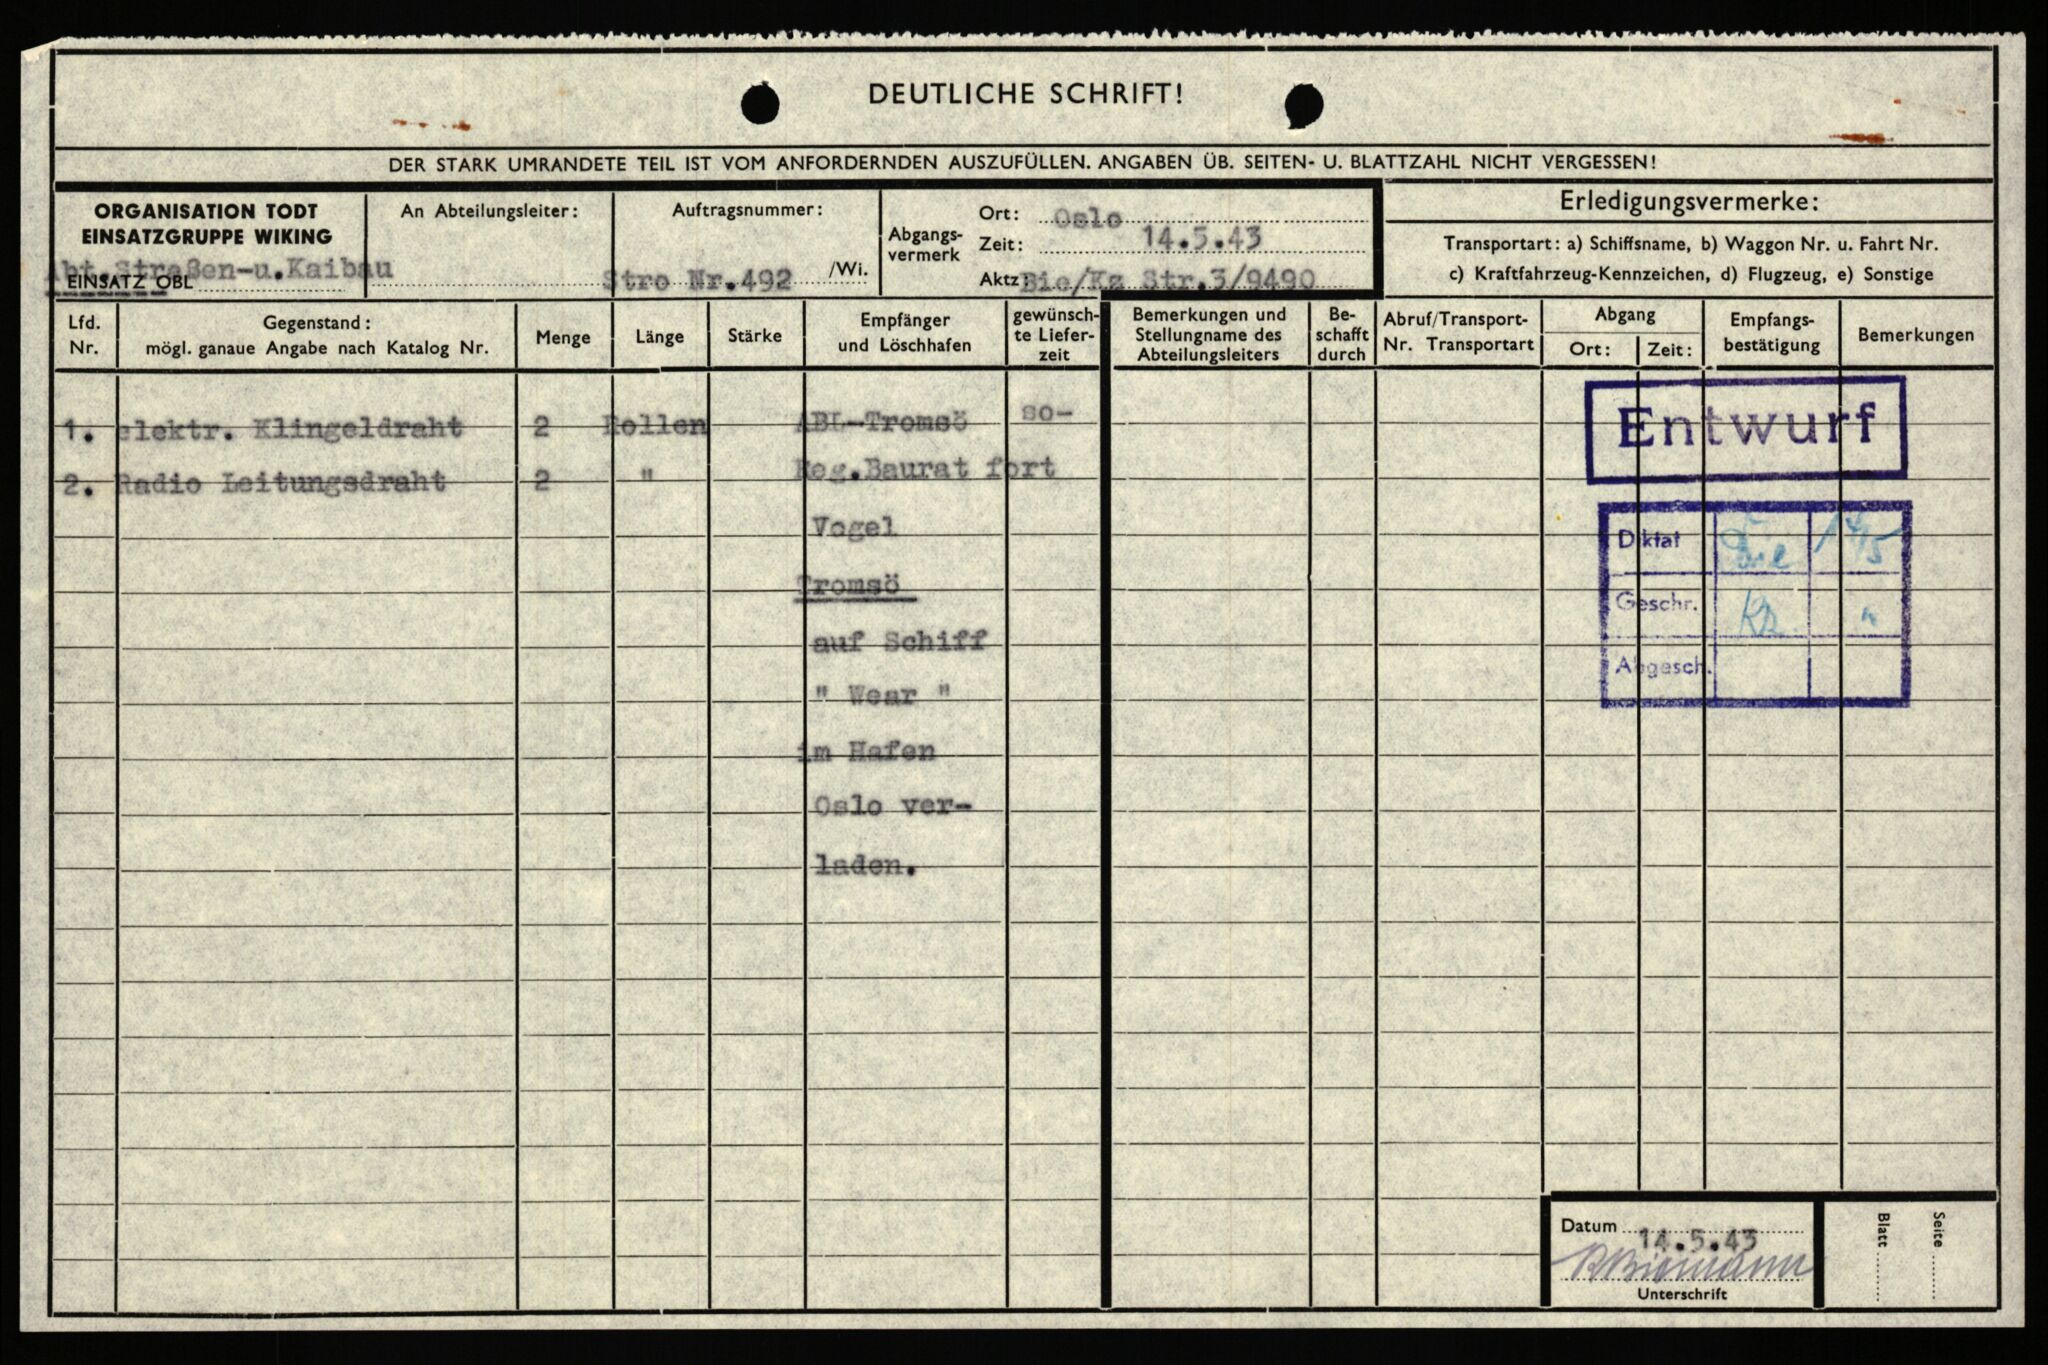 DEUTLICHE SCHRIFT!
DER STARK UMRANDETE TEIL IST VOM ANFORDERNDEN AUSZUFÜLLEN. ANGABEN ÜB. SEITEN- U. BLATTZAHL NICHT VERGESSEN!
ORGANISATION TODT
EINSATZGRUPPE WIKING
Abt.Straßen-u.Kaibau
EINSATZ OBL
An Abteilungsleiter:
Auftragsnummer:
Stro Nr.492 /Wi.
Abgangs-
vermerk
Ort: Oslo
Zeit: 14.5.43
Aktz Bie/Kz Str.3/9490
Erledigungsvermerke:
Transportart: a) Schiffsname, b) Waggon Nr. u. Fahrt Nr.
c) Kraftfahrzeug-Kennzeichen, d) Flugzeug, e) Sonstige
Lfd.
Nr.
Gegenstand:
mögl. ganaue Angabe nach Katalog Nr.
Menge
Länge
Stärke
Empfänger
und Löschhafen
gewünsch-
te Liefer-
zeit
Bemerkungen und
Stellungname des
Abteilungsleiters
Be-
schafft
durch
Abruf/Transport-
Nr. Transportart
Abgang
Ort: Zeit:
Empfangs-
bestätigung
Bemerkungen
1. elektr. Klingeldraht 2 Rollen ABL-Tromsö so-
2. Radio Leitungsdraht 2 " Reg.Baurat fort
Vogel
Tromsö
auf Schiff
" Wear "
im Hafen
Oslo ver-
laden.
Entwurf
Diktat Bie 14/5
Geschr. Kz "
Abgesch.
Datum 14.5.43
Biemann
Unterschrift
Blatt
Seite